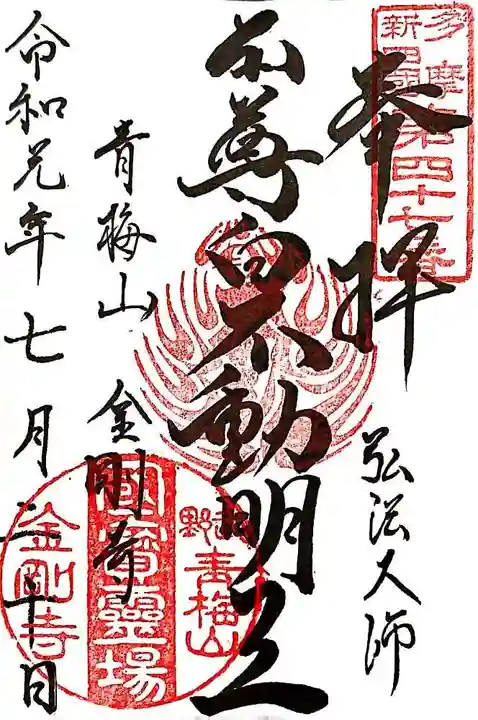 多摩
新四國
第四十七番
奉拝
弘法大師
本尊白不動明王
青梅山 金剛寺
青梅山
國寶靈場
金剛寺
令和元年七月二十日